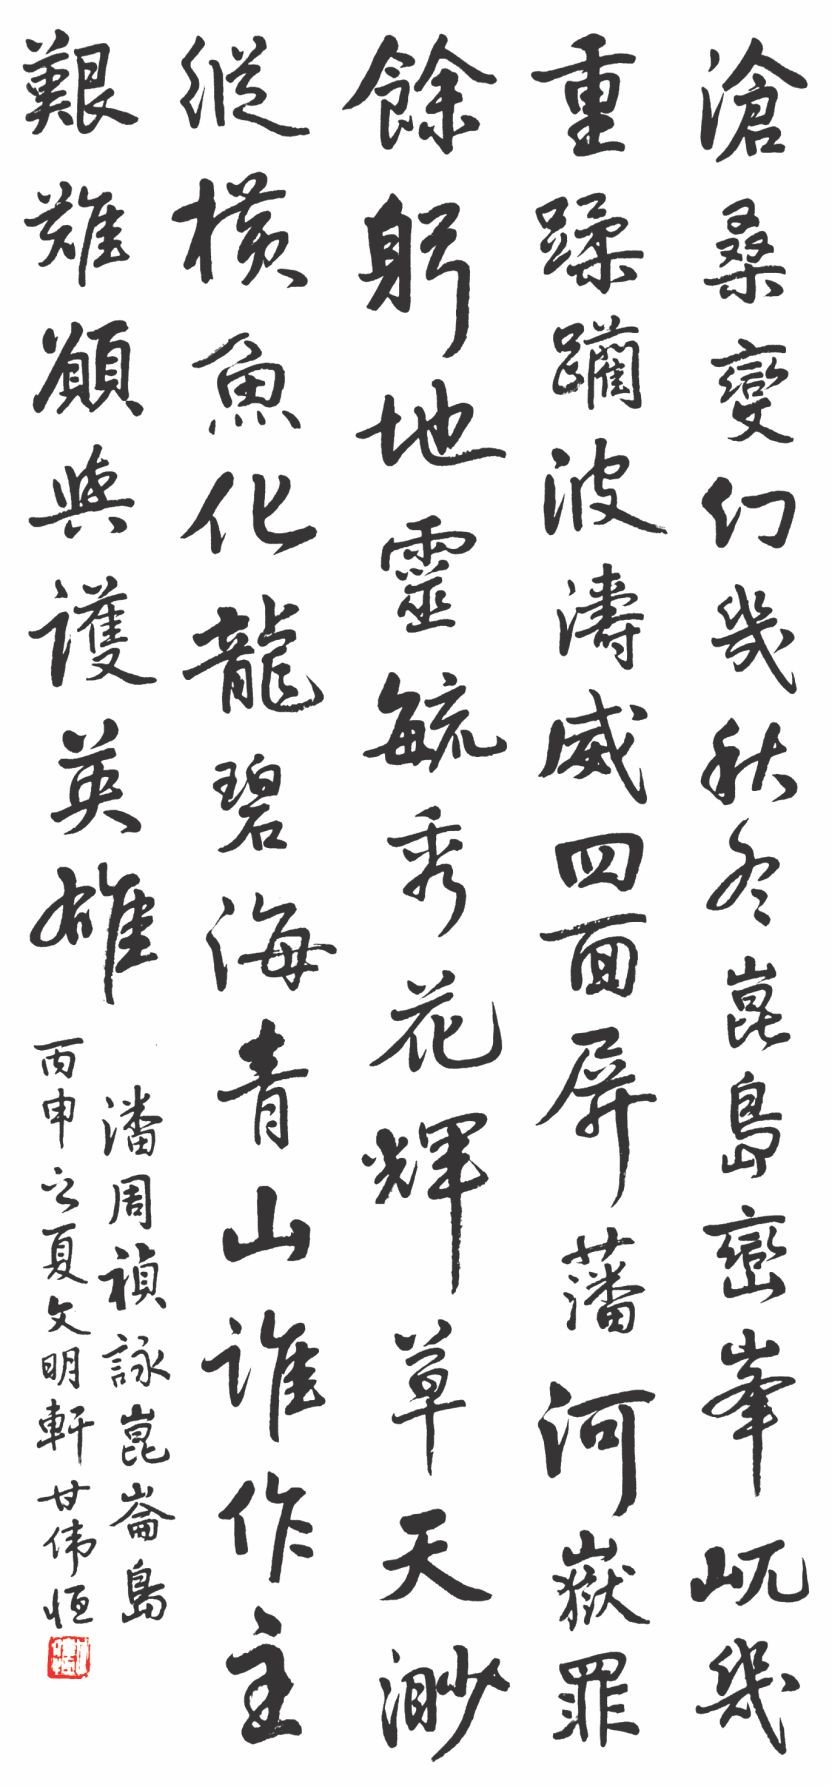 滄桑變幻幾秋冬崑島巒峯屼幾
重蹂躪波濤威四面屏藩河嶽罪
餘躬地靈毓秀花輝草天渺
縱橫魚化龍碧海青山誰作主
艱難願與護英雄
潘周禎詠崑崙島
丙申之夏文明軒甘伟恒